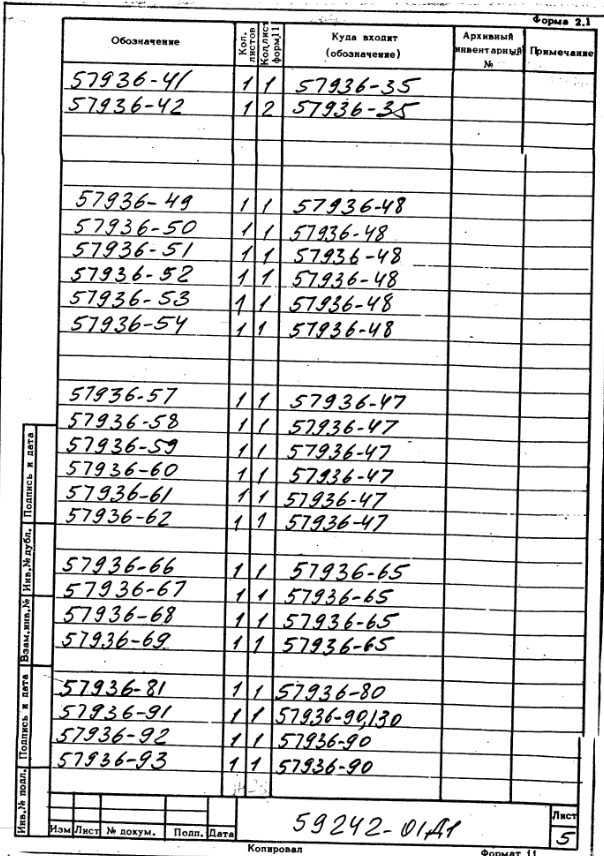 Форма 2.1
Обозначение Кол. листов Кол.лист форм.11 Куда входит (обозначение) Архивный инвентарный № Примечание
57936-41 1 1 57936-35
57936-42 1 2 57936-35
57936-49 1 1 57936-48
57936-50 1 1 57936-48
57936-51 1 1 57936-48
57936-52 1 1 57936-48
57936-53 1 1 57936-48
57936-54 1 1 57936-48
57936-57 1 1 57936-47
57936-58 1 1 57936-47
57936-59 1 1 57936-47
57936-60 1 1 57936-47
57936-61 1 1 57936-47
57936-62 1 1 57936-47
57936-66 1 1 57936-65
57936-67 1 1 57936-65
57936-68 1 1 57936-65
57936-69 1 1 57936-65
57936-81 1 1 57936-80
57936-91 1 1 57936-90,130
57936-92 1 1 57936-90
57936-93 1 1 57936-90
Инв.№ подл. Подпись и дата Взам.инв.№ Инв.№ дубл. Подпись и дата
59242-01Д1
Лист
5
Изм Лист № докум. Подп. Дата
Копировал Формат 11